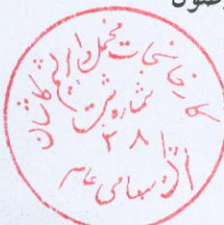 کارخانجات مخمل و ابریشم کاشان
شماره ثبت
۲۸۱
سهامی عام